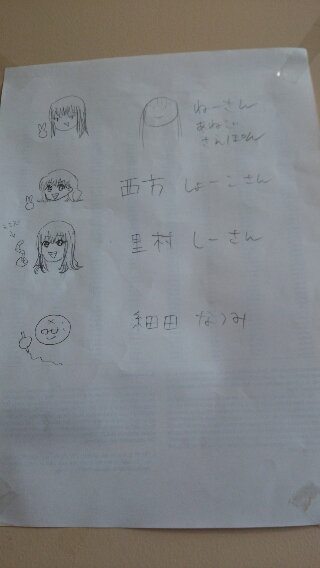 ねーさん
あねご
さんぽん
西方 しょーこさん
里村 しーさん
細田 なつみ